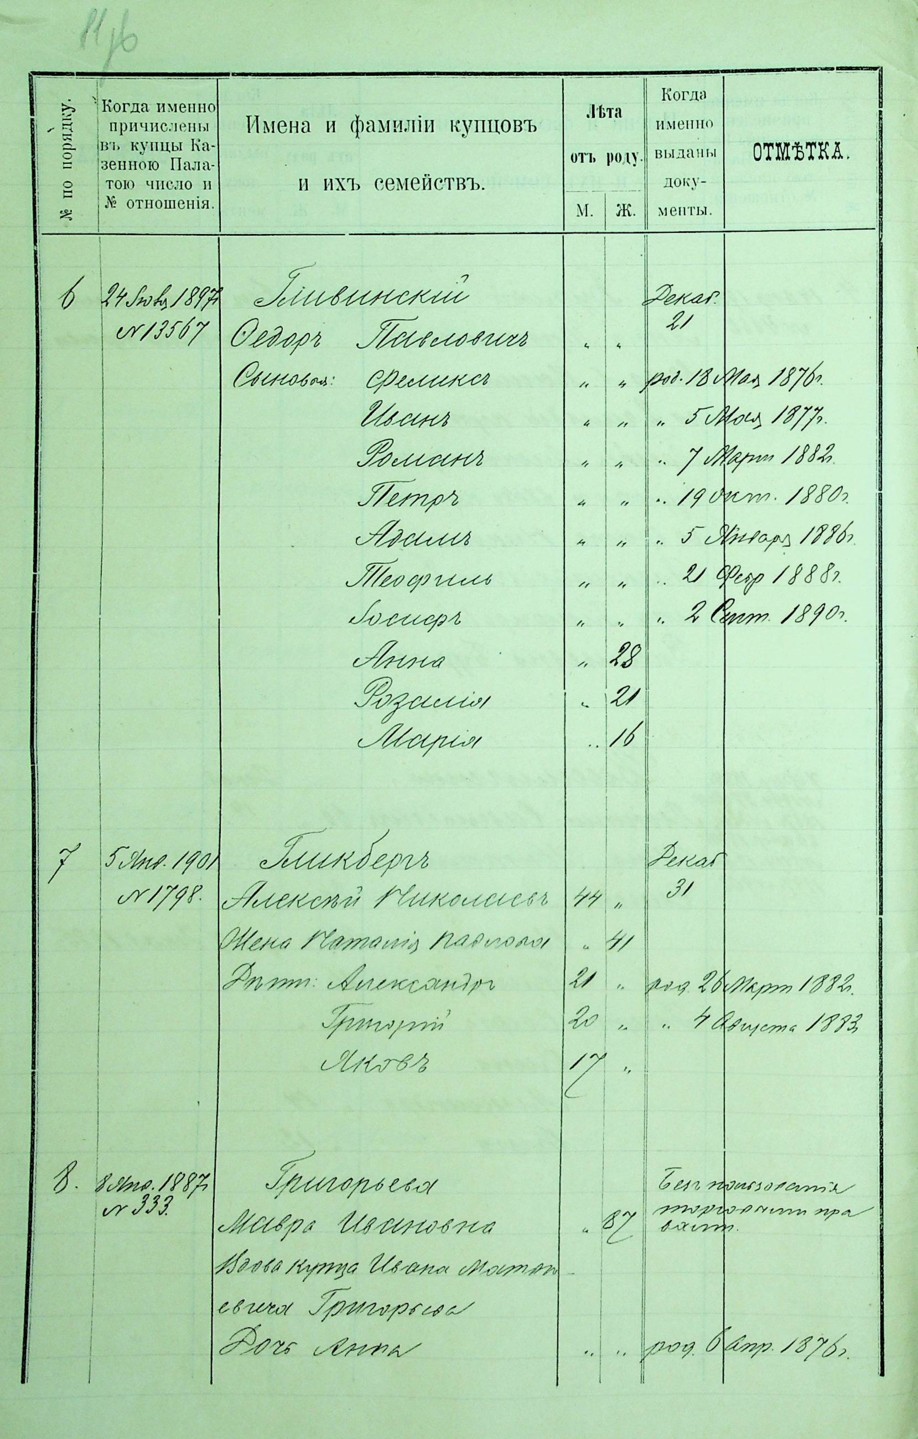 № по порядку.
Когда именно
причислены
въ купцы Ка-
зенною Пала-
тою число и
№ отношенія.
Имена и фамиліи купцовъ
и ихъ семействъ.
Лѣта
отъ роду.
М. Ж.
Когда
именно
выданы
доку-
менты.
ОТМѢТКА.
6 24 Янв 1897г Гливинскій Декаб.
N 13567 Ѳедоръ Павловичъ „ „ 21
Сыновья: Феликсъ „ „ род. 18 Мая 1876г.
Иванъ „ „ „ 5 Мая 1877г.
Романъ „ „ „ 7 Март 1882г.
Петръ „ „ „ 19 окт. 1880г.
Адамъ „ „ „ 5 Января 1886г.
Теофиль „ „ „ 21 Февр 1888г.
Іосифъ „ „ „ 2 Сент. 1890г.
Анна „ 28
Розалія „ 21
Марія „ 16
7 5 Янв. 1901 Гликбергъ Декаб
N 1798. Алексѣй Николаевъ 44 „ 31
Жена Наталія Павлова „ 41
Дѣти: Александръ 21 „ род. 26 Март 1882г.
Григорій 20 „ „ 4 Августа 1883
Яковъ 17 „
8. 8 Янв. 1887г Григорьева Безъ пользованія
N 333. торговыми пра
Мавра Ивановна „ 87 вами.
Вдова купца Ивана Матѳ
евича Григорьева
Дочь Анна „ „ род. 6 апр. 1876г.